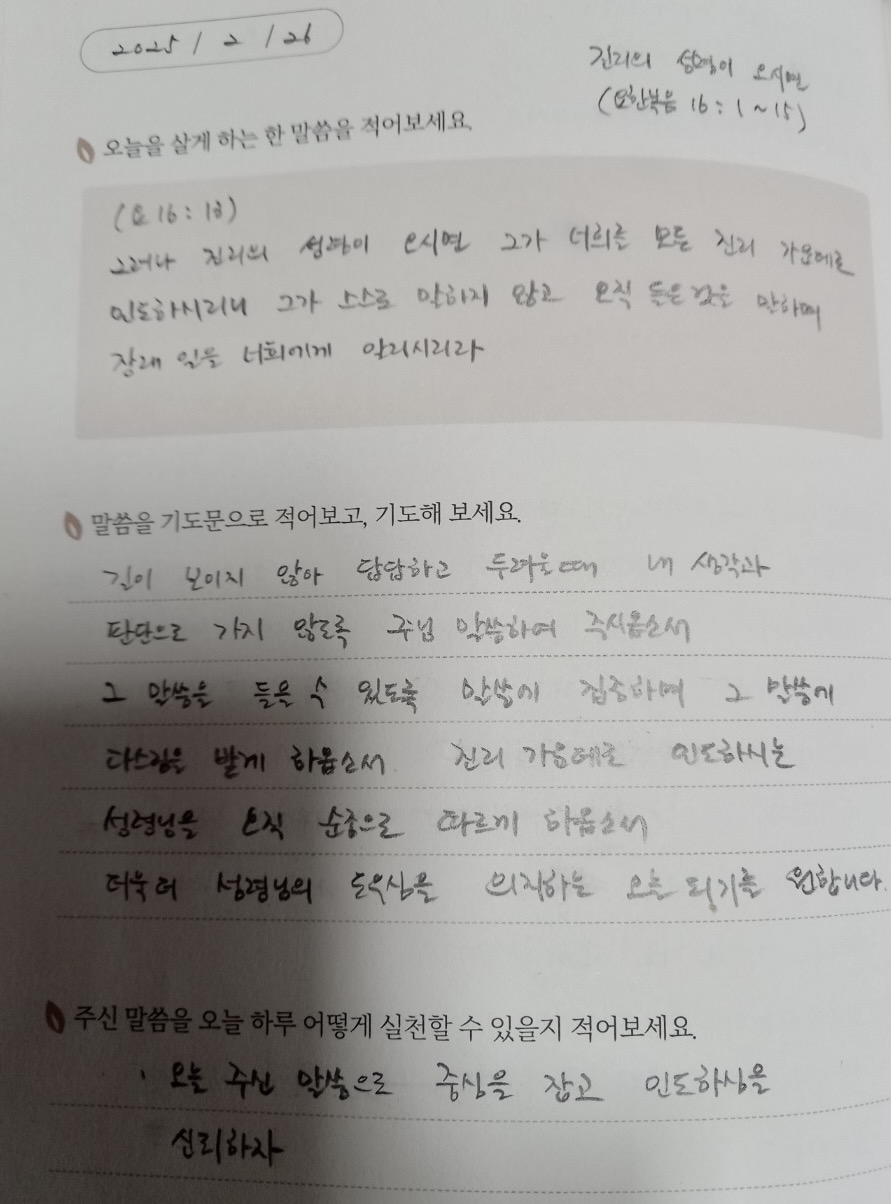 2025 / 2 / 26
진리의 성령이 오시면
(요한복음 16 : 1 ~ 15)
오늘을 살게 하는 한 말씀을 적어보세요.
(요 16 : 13)
그러나 진리의 성령이 오시면 그가 너희를 모든 진리 가운데로
인도하시리니 그가 스스로 말하지 않고 오직 들은 것을 말하며
장래 일을 너희에게 알리시리라
말씀을 기도문으로 적어보고, 기도해 보세요.
길이 보이지 않아 답답하고 두려울때 내 생각과
판단으로 가지 않도록 주님 말씀하여 주시옵소서
그 말씀을 들을 수 있도록 말씀에 집중하며 그 말씀에
다스림을 받게 하옵소서 진리 가운데로 인도하시는
성령님을 오직 순종으로 따르게 하옵소서
더욱더 성령님의 도우심을 의지하는 오늘 되기를 원합니다.
주신 말씀을 오늘 하루 어떻게 실천할 수 있을지 적어보세요.
오늘 주신 말씀으로 중심을 잡고 인도하심을
신뢰하자